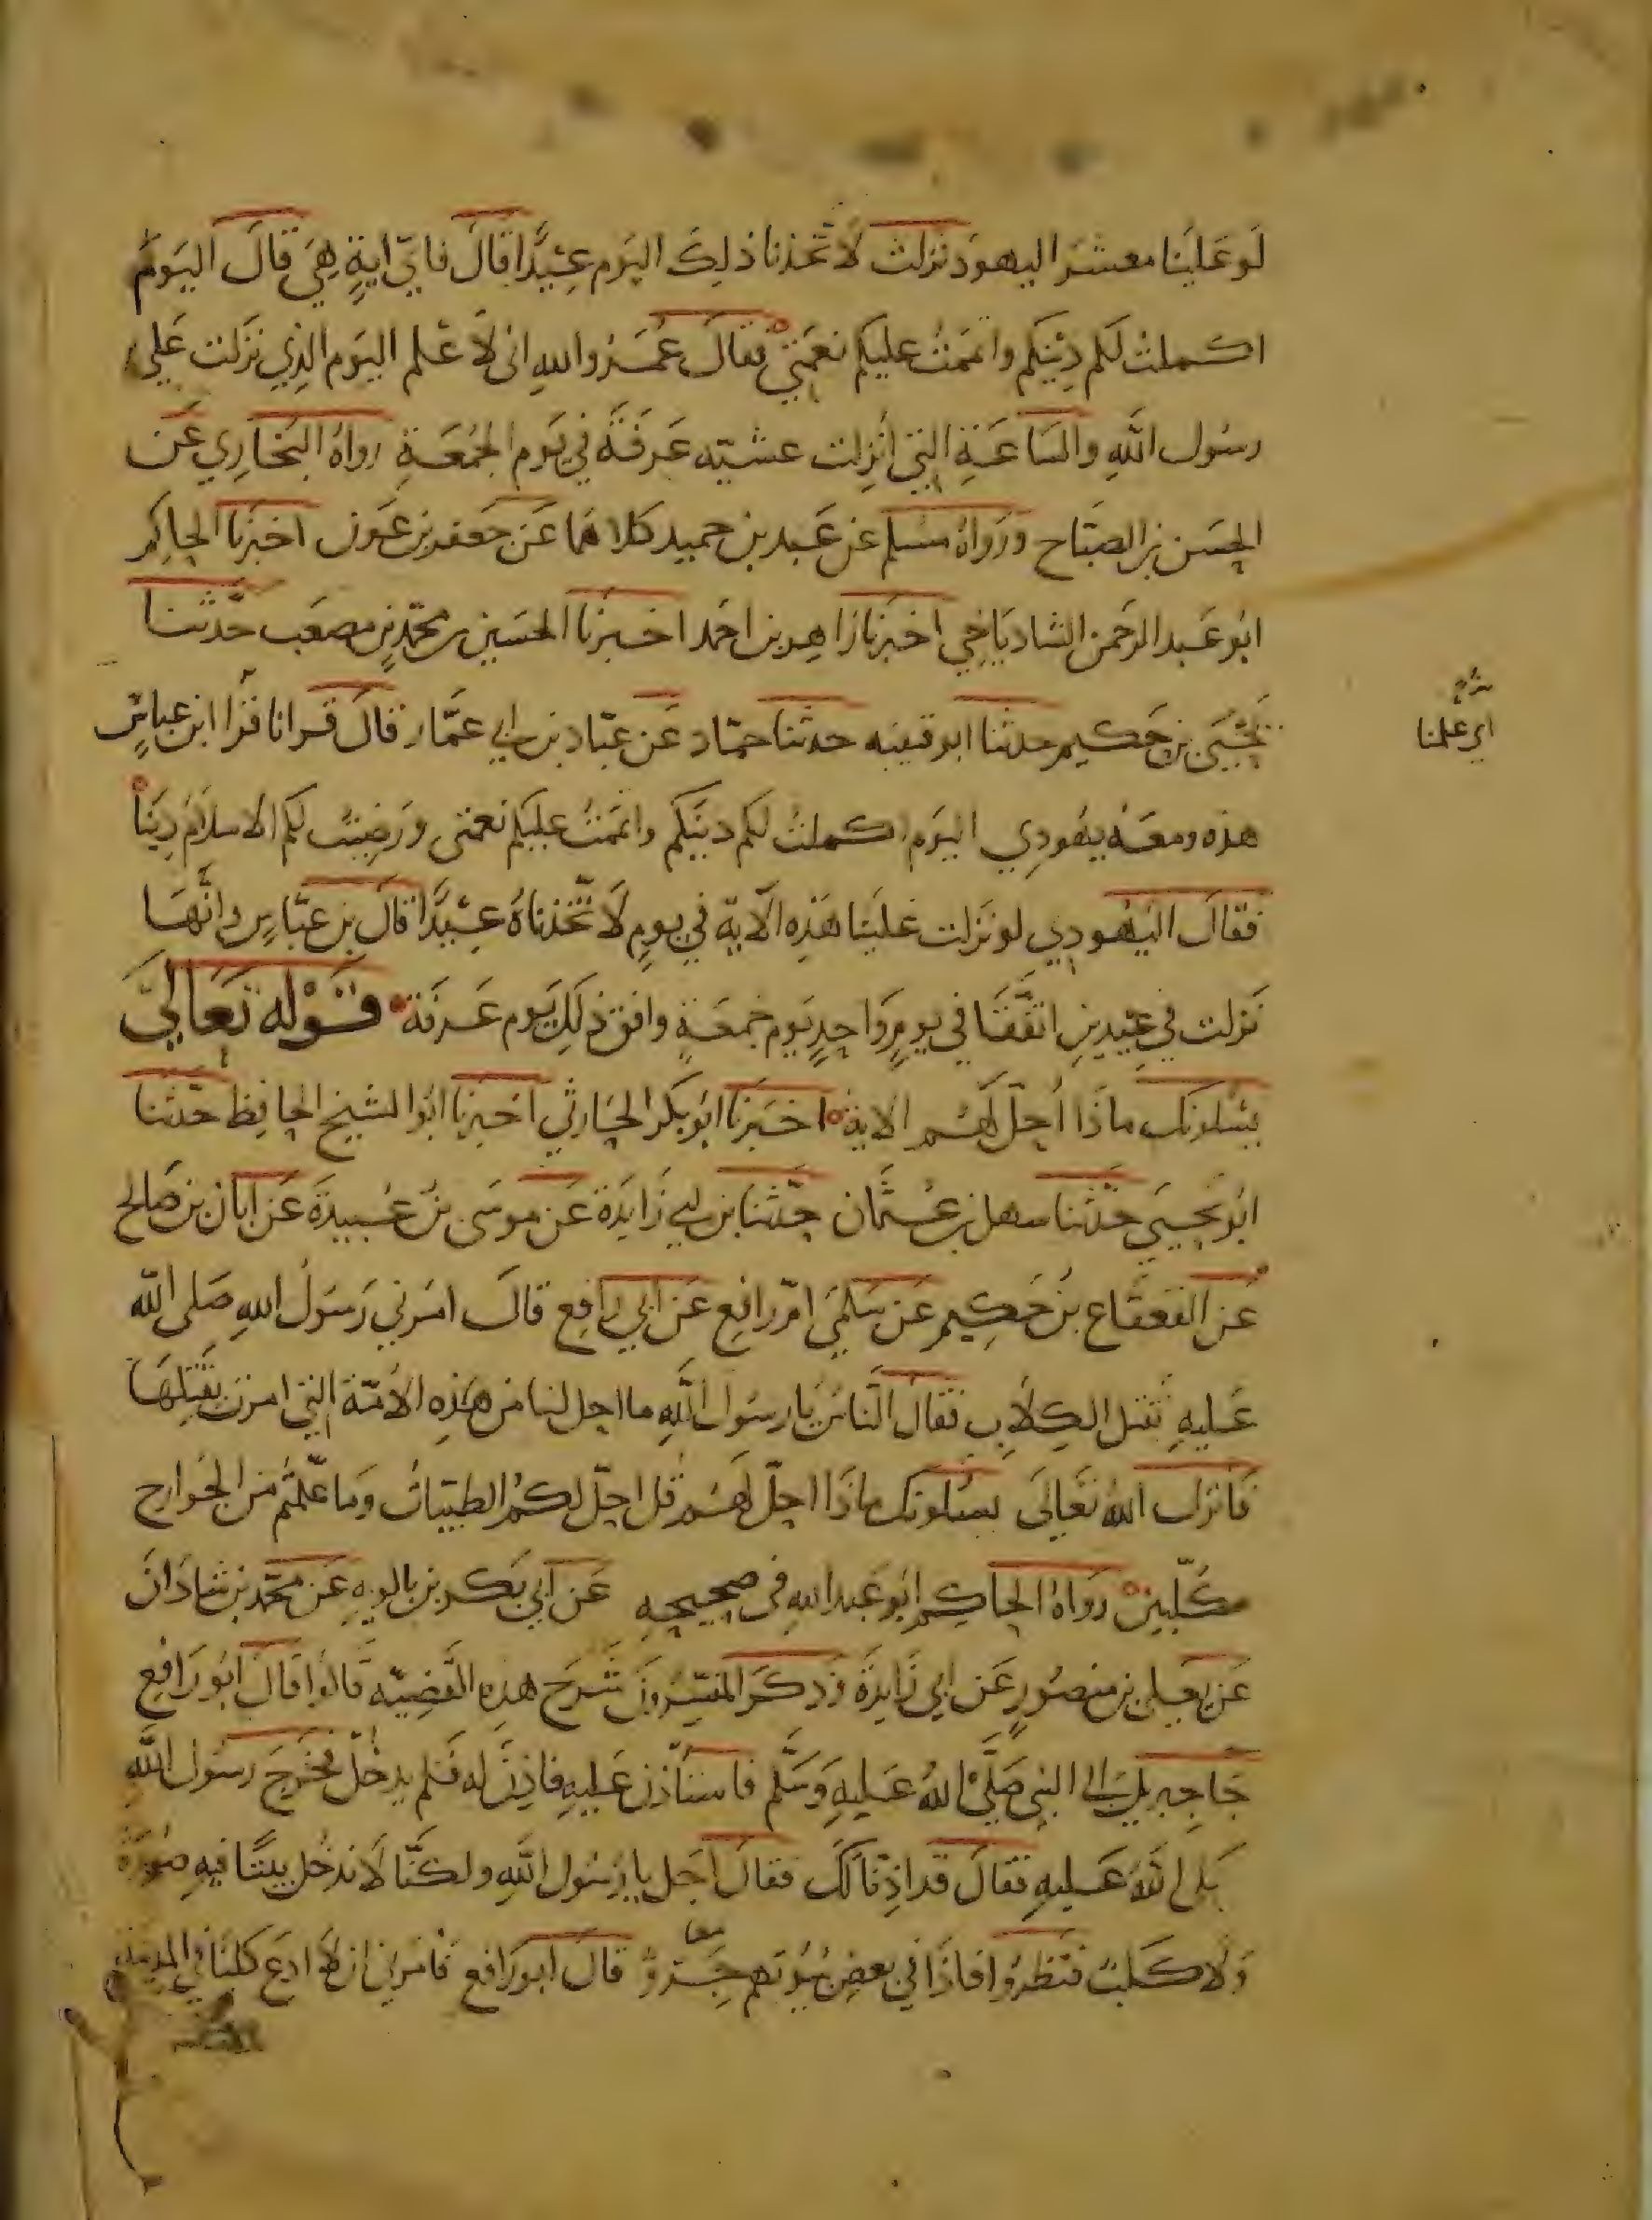 لو علينا معشر اليهود نزلت لاتخذنا ذلك اليوم عيدا قال فاي اية هي قال اليوم
اكملت لكم دينكم واتممت عليكم نعمتي فقال عمر والله اني لاعلم اليوم الذي نزلت على
رسول الله والساعة التي انزلت عشيه عرفة في يوم الجمعة رواه البخاري عن
الحسن بن الصباح ورواه مسلم عن عبد بن حميد كلاهما عن جعفر بن عون اخبرنا الحاكم
ابو عبد الرحمن الشادياخي اخبرنا زاهر بن احمد اخبرنا الحسين بن محمد بن مصعب حدثنا
يحيى بن حكيم حدثنا ابو قتيبه حدثنا حماد عن عباد بن ابي عمار قال قرانا فقرا ابن عباس
هذه ومعه يهودي اليوم اكملت لكم دينكم واتممت عليكم نعمتي ورضيت لكم الاسلام دينا
فقال اليهودي لو نزلت علينا هذه الاية في يوم لاتخذناه عيدا قال بن عباس وانها
نزلت في عيدين اتفقا في يوم واحد يوم جمعة وافق ذلك يوم عرفة قوله تعالى
يسلونك ماذا احل لهم الاية اخبرنا ابو بكر الحارثي اخبرنا ابو الشيخ الحافظ حدثنا
ابو يحيى حدثنا سهل بن عثمان حدثنا بن ابي زايدة عن موسى بن عبيدة عن ابان بن صالح
عن القعقاع بن حكيم عن سلمى ام رافع عن ابي رافع قال امرني رسول الله صلى الله
عليه بقتل الكلاب فقال الناس يا رسول الله ما احل لنا من هذه الامة التي امرت بقتلها
فانزل الله تعالى يسلونك ماذا احل لهم قل احل لكم الطيبات وما علمتم من الجوارح
مكلبين رواه الحاكم ابو عبد الله في صحيحه عن ابي بكر بن بالويه عن محمد بن شاذان
عن يعلى بن منصور عن ابي زايدة وذكر المفسرون شرح هذه القضيه قالوا قال ابو رافع
جا جبريل الى النبي صلى الله عليه وسلم فاستاذن عليه فاذن له فلم يدخل فخرج رسول الله
صلى الله عليه فقال قد اذنا لك فقال اجل يا رسول الله ولكنا لا ندخل بيتا فيه صورة
ولا كلب فنظروا فاذا في بعض بيوتهم جرو قال ابو رافع فامرني ان لا ادع كلبا في المدينة
معا
اي علينا